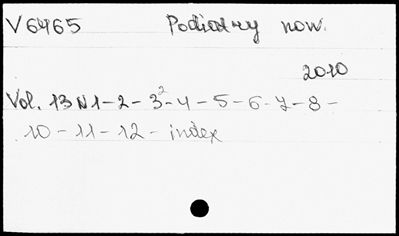 V6465 Podiatry now.
2010
Vol. 13 N 1-2-3²-4-5-6-7-8-
10-11-12-index